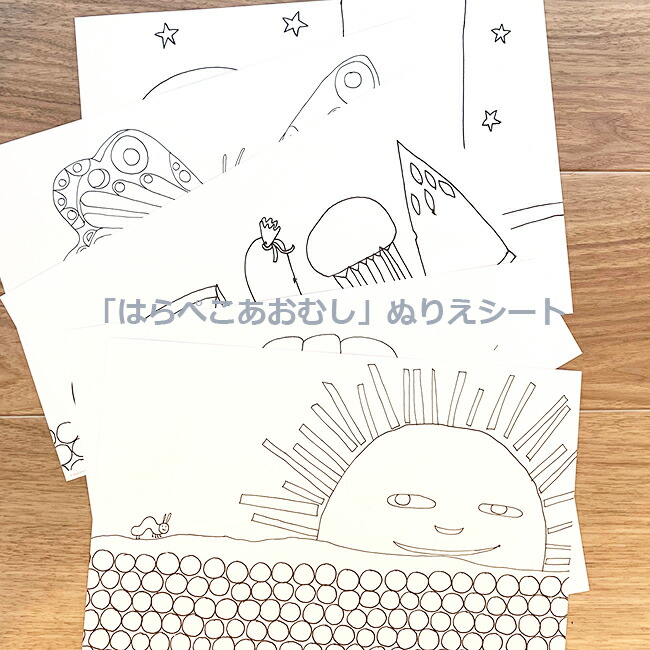 「はらぺこあおむし」ぬりえシート